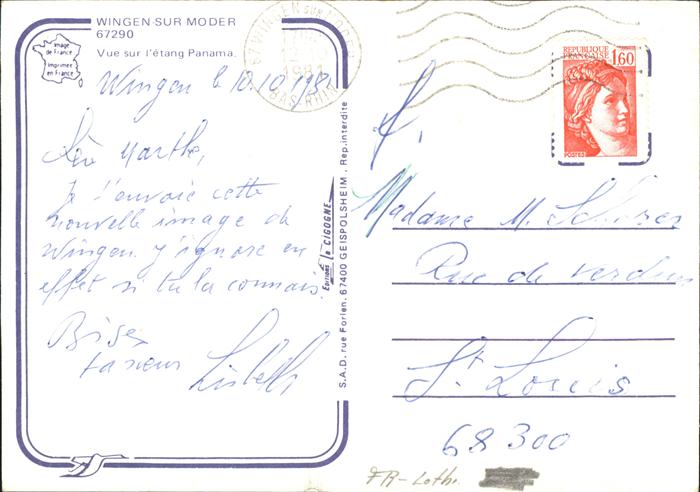 WINGEN-SUR MODER
67290
Vue sur l'étang Panama.
Image
de France
Imprimée
en France
Wingen le 10.10 1981
Marthe,
Je t'envoie cette
nouvelle image de
Wingen. J'ignore en
effet si tu la connais.
Bises
ta soeur
S.A.D. rue Forlen. 67400 GEISPOLSHEIM. Rep. interdite
Editions la CIGOGNE
67 WINGEN SUR MODER
BAS-RHIN
REPUBLIQUE
FRANÇAISE
1,60
POSTES
Madame M.
Rue de Verdun
St Louis
68300